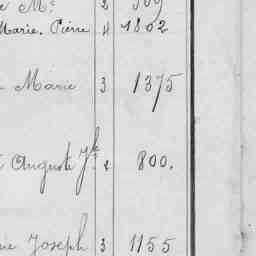 Mc 2 509
Marie. Pierre 4 1802
Marie 3 1375
Auguste Jh 2 800.
Joseph 3 1155